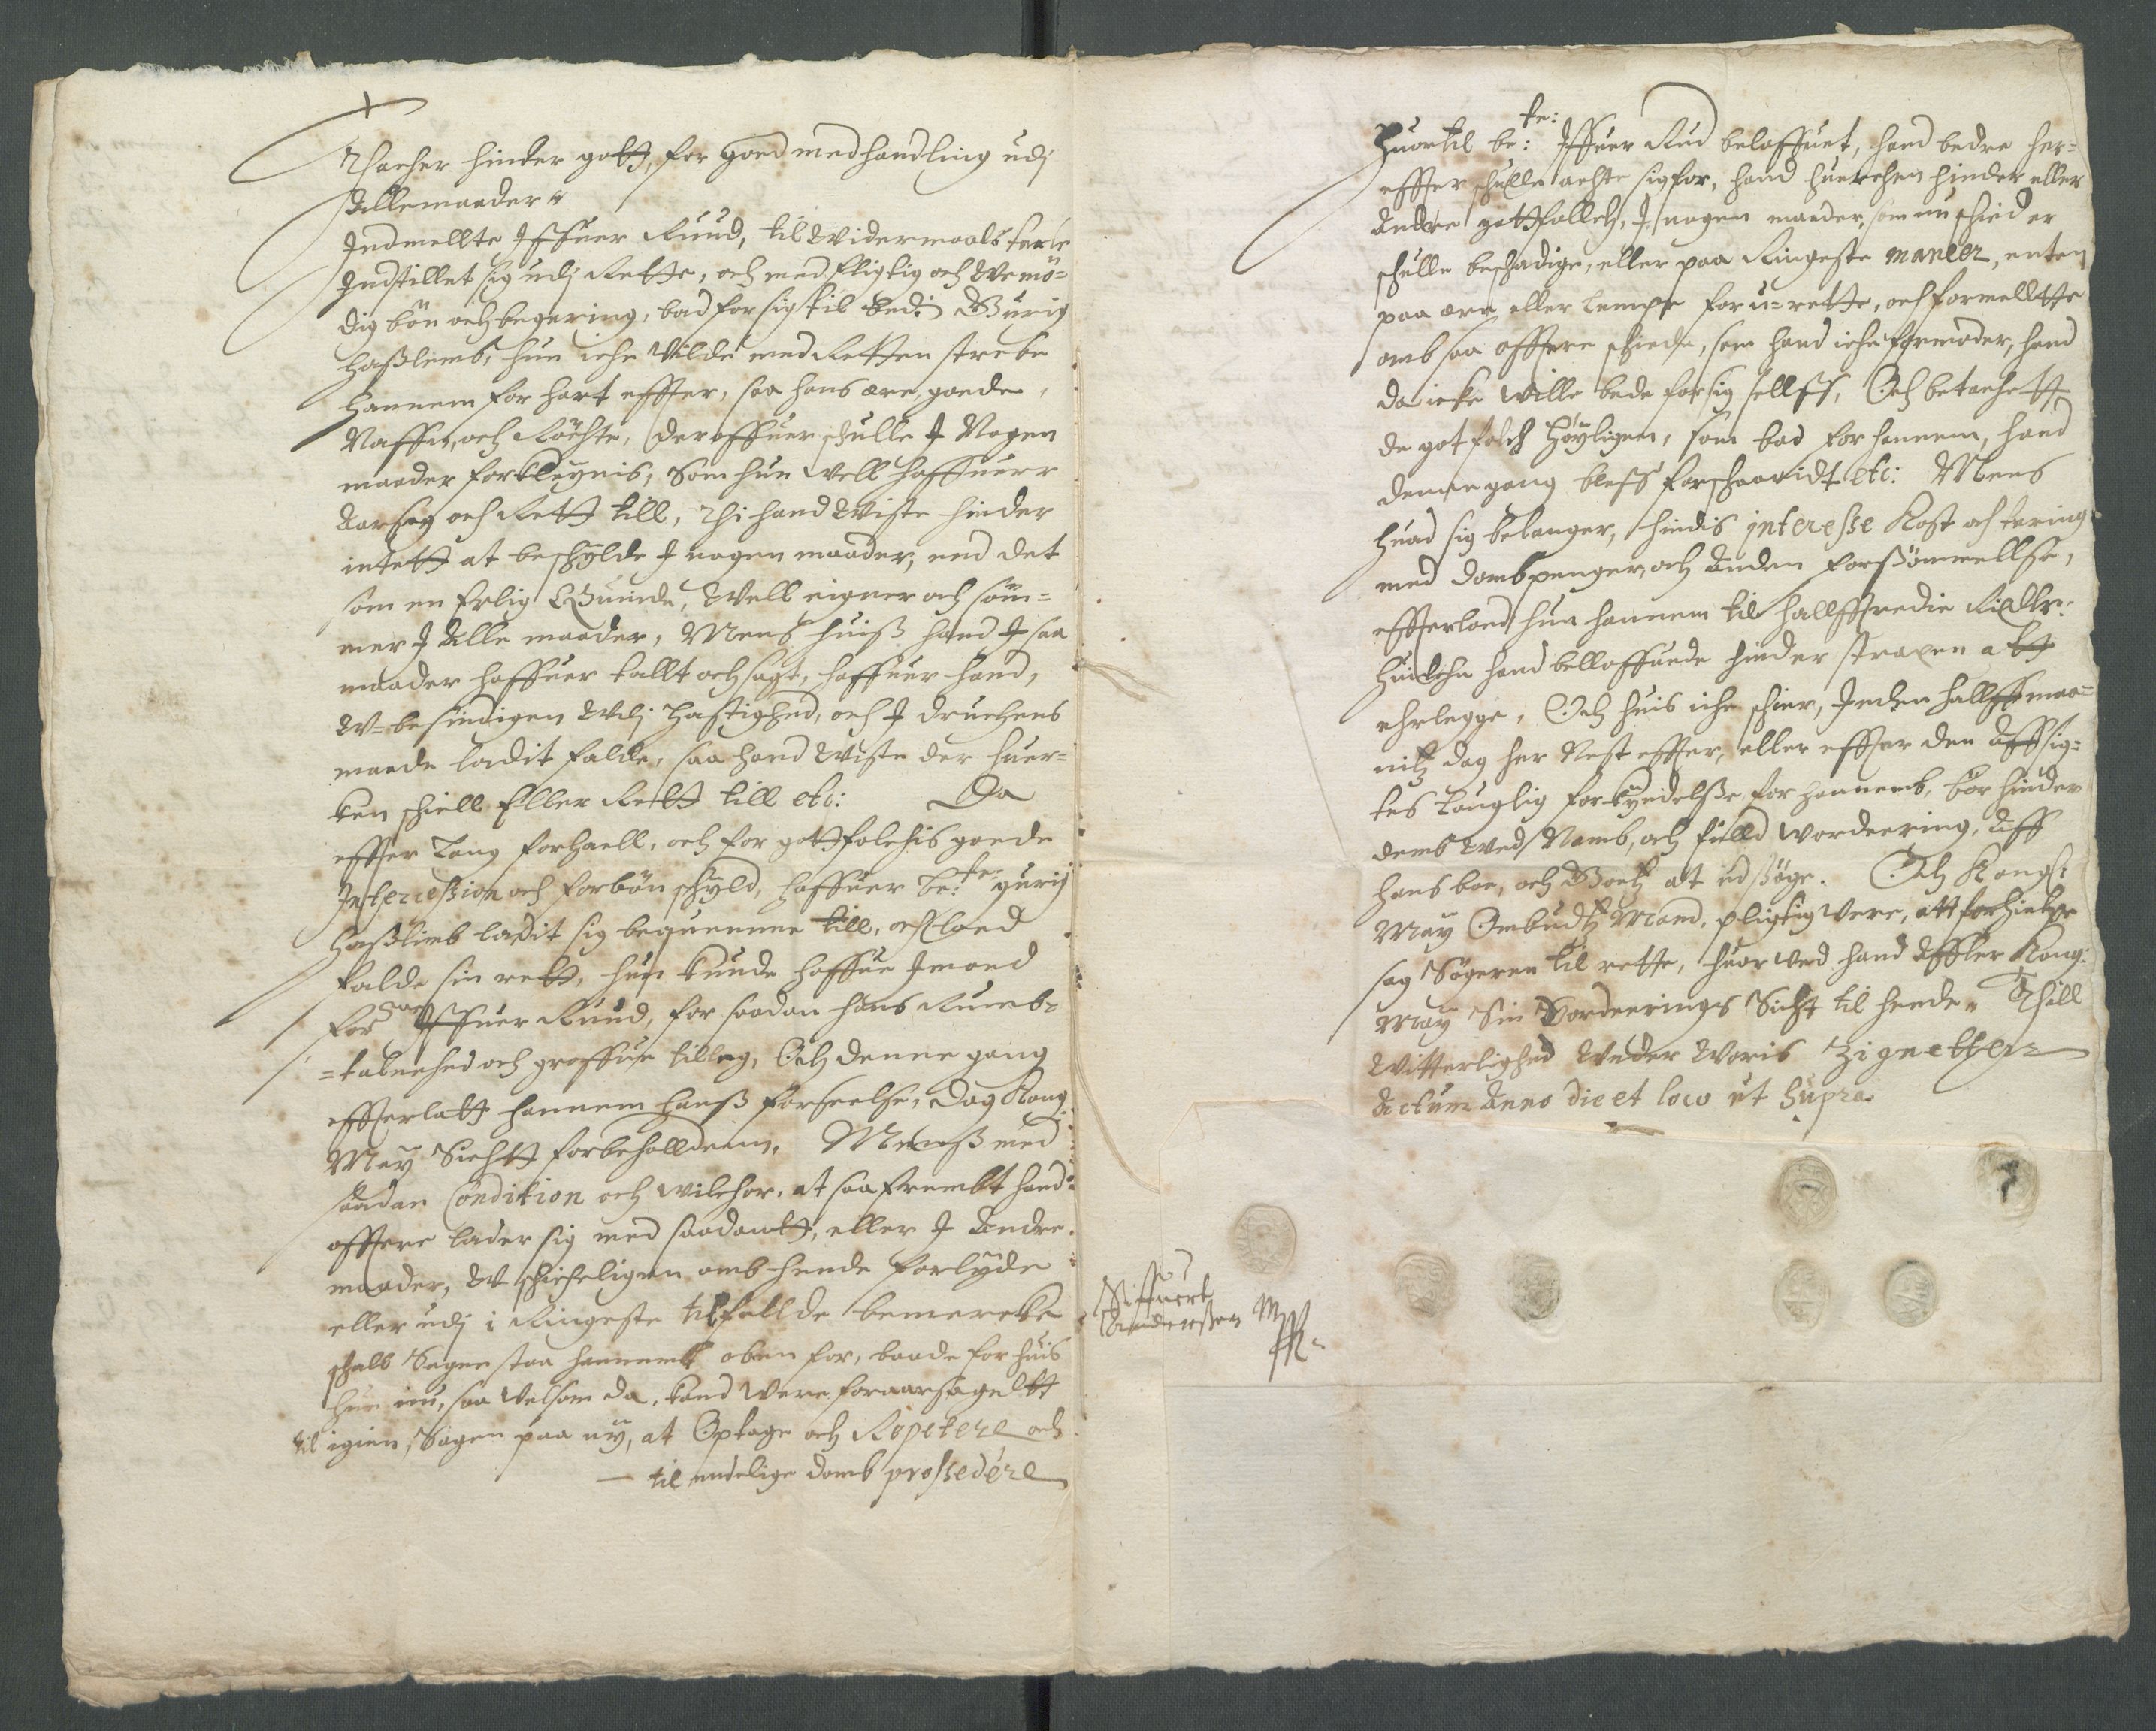 Thacher hinder gott, for goed medhandling udj
Allemaader
Indmellte Iffuer Ruud, til Widermaals tacke
Indstillet sig udj Rette, och med fligtig och Wemö-
dig bön och begering, bad for sig til bed: Gurig
Hasslemb, hun iche Vilde med Retten strebe
hannem for hart effter, saa hans ære, goede
Naffn, och Röchte, der offuer schulle I Nogen
maader forkleynis, som hun well haffuer
Aarsag och Rett till, Thi hand Wiste hinder
intett at beschylde I nogen maader, end det
som en Erlig Quinde, Well eigner och söm-
mer I Alle maader, Mens huiss hand I saa
maader haffuer tallt och sagt, haffuer hand,
W-besindigen Udj Hastighed, och I druchens
maade ladit falde, saa hand Wiste der huer-
ken schiell Eller Rett till etc: Da
effter Lang forhaell, och for gottfolchis goede
Intercession och forbön schyld, haffuer be:te gurij
Hasslimb ladit sig bequemme till, och loed
falde sin rett, hun kunde haffue Imoed
for:ne Iffuer Ruud, for saadan hans Rumb-
=talenhed och groffue tilleg, Och denne gang
effterlatt hannem hanss forseelse, dog Kong:
May Sichtt forbeholldenn, Menss med
saadan Condition och wilchor, at saa frembt hand
offtere lader sig med saadantt, eller I Andre
maader, W-schicheligen omb hende forlyde
eller udj i Ringeste tilfellde bemercke
schall Sagen staa hannemb oben for, baade for huis
hun nu, saa Velsom da, kand Were foraarsagett
til igien, Sagen paa ny, at Optage och Repetere och
til endelige domb prossedére
Huortil be:te: Iffuer Rud beloffuet, hand bedre her-
effter schulle achte sig for, hand huerchen hinder eller
Andre gottfollch, I nogen maader, som nu schied er
schulle beschadige, eller paa Ringeste maneer, enten
paa ære eller Lempe for u-rette, och formellte
omb saa offtere schiede, som hand iche formoder, hand
da icke wille bede for sig sellff, Och betachett
de got folch Höyligen, som bad for hannem, hand
denne gang bleff forschaanidt etc: Mens
huad sig belanger, hindis interesse Kost och tering
med dombpenger, och Anden forssömmellse,
effterloed hun hannem til hallffierdie Ricdlr:
Huilchn hand belloffuede hinder straxen att
erlegge, Och huis iche schier, Inden hallff maa-
nitz dag her Nest effter, eller effter den Affsig-
tes Louglig forkyndelsse for hannemb, bör hinder
demb Wed Namb, och fulld Wordeering, Aff
hans boe, och Goetz at udssöge. Och Kongl:
May Ombudtz Mand, pligtig Vere, att forhielpe
sag Sögeren til rette, huor Ved hand Affkler Kong:
May Sin Vordeerings Sicht til hende. Thill
Witterlighed Under Woris Zignetter
Actum Anno die et loco ut Supra.
Siffuert
Anderssen